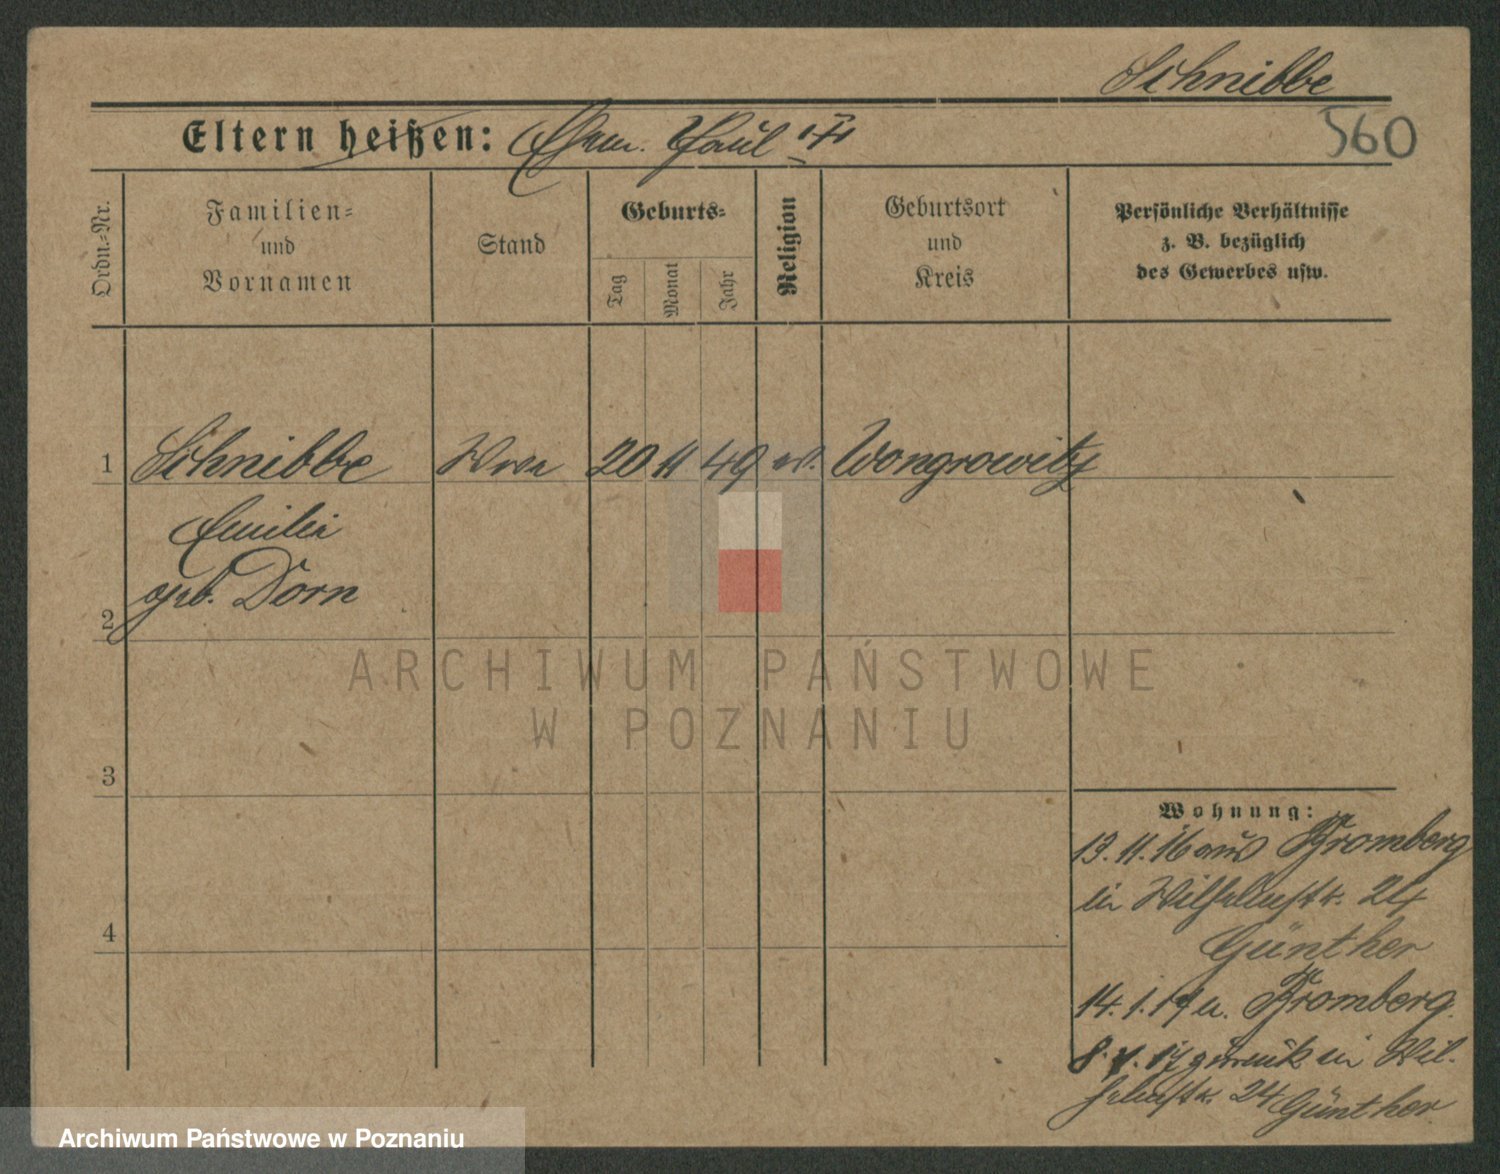 Schnibbe
560
Eltern heißen: Ehem. Paul
Ordn.-Nr.
Familien-
und
Vornamen
Stand
Geburts-
Tag
Monat
Jahr
Religion
Geburtsort
und
Kreis
Persönliche Verhältnisse
z. B. bezüglich
des Gewerbes usw.
1 Schnibbe Wwe 20 11 49 ev. Wongrowitz
Emilie
geb. Dorn
2
3
4
ARCHIWUM PAŃSTWOWE
W POZNANIU
Wohnung:
13. 11. 16 aus Bromberg
in Wilhelmstr. 24
Günther
14. 1. 17 n. Bromberg.
8. 17 zurück in Wil-
helmstr. 24 Günther
Archiwum Państwowe w Poznaniu